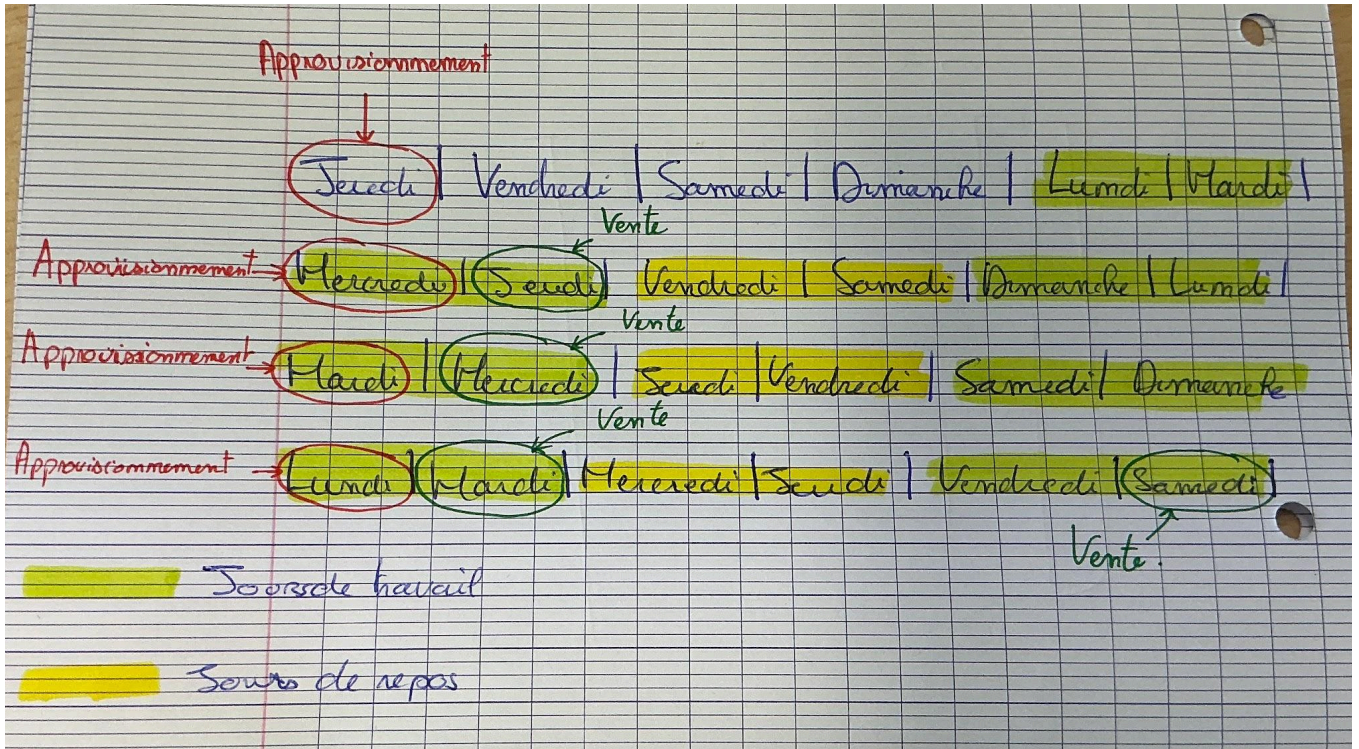 Approvisionnement
Jeudi | Vendredi | Samedi | Dimanche | Lundi | Mardi |
Vente
Approvisionnement Mercredi | Jeudi | Vendredi | Samedi | Dimanche | Lundi |
Vente
Approvisionnement Mardi | Mercredi | Jeudi | Vendredi | Samedi | Dimanche
Vente
Approvisionnement Lundi | Mardi | Mercredi | Jeudi | Vendredi | Samedi |
Vente.
Jours de travail
Jours de repos